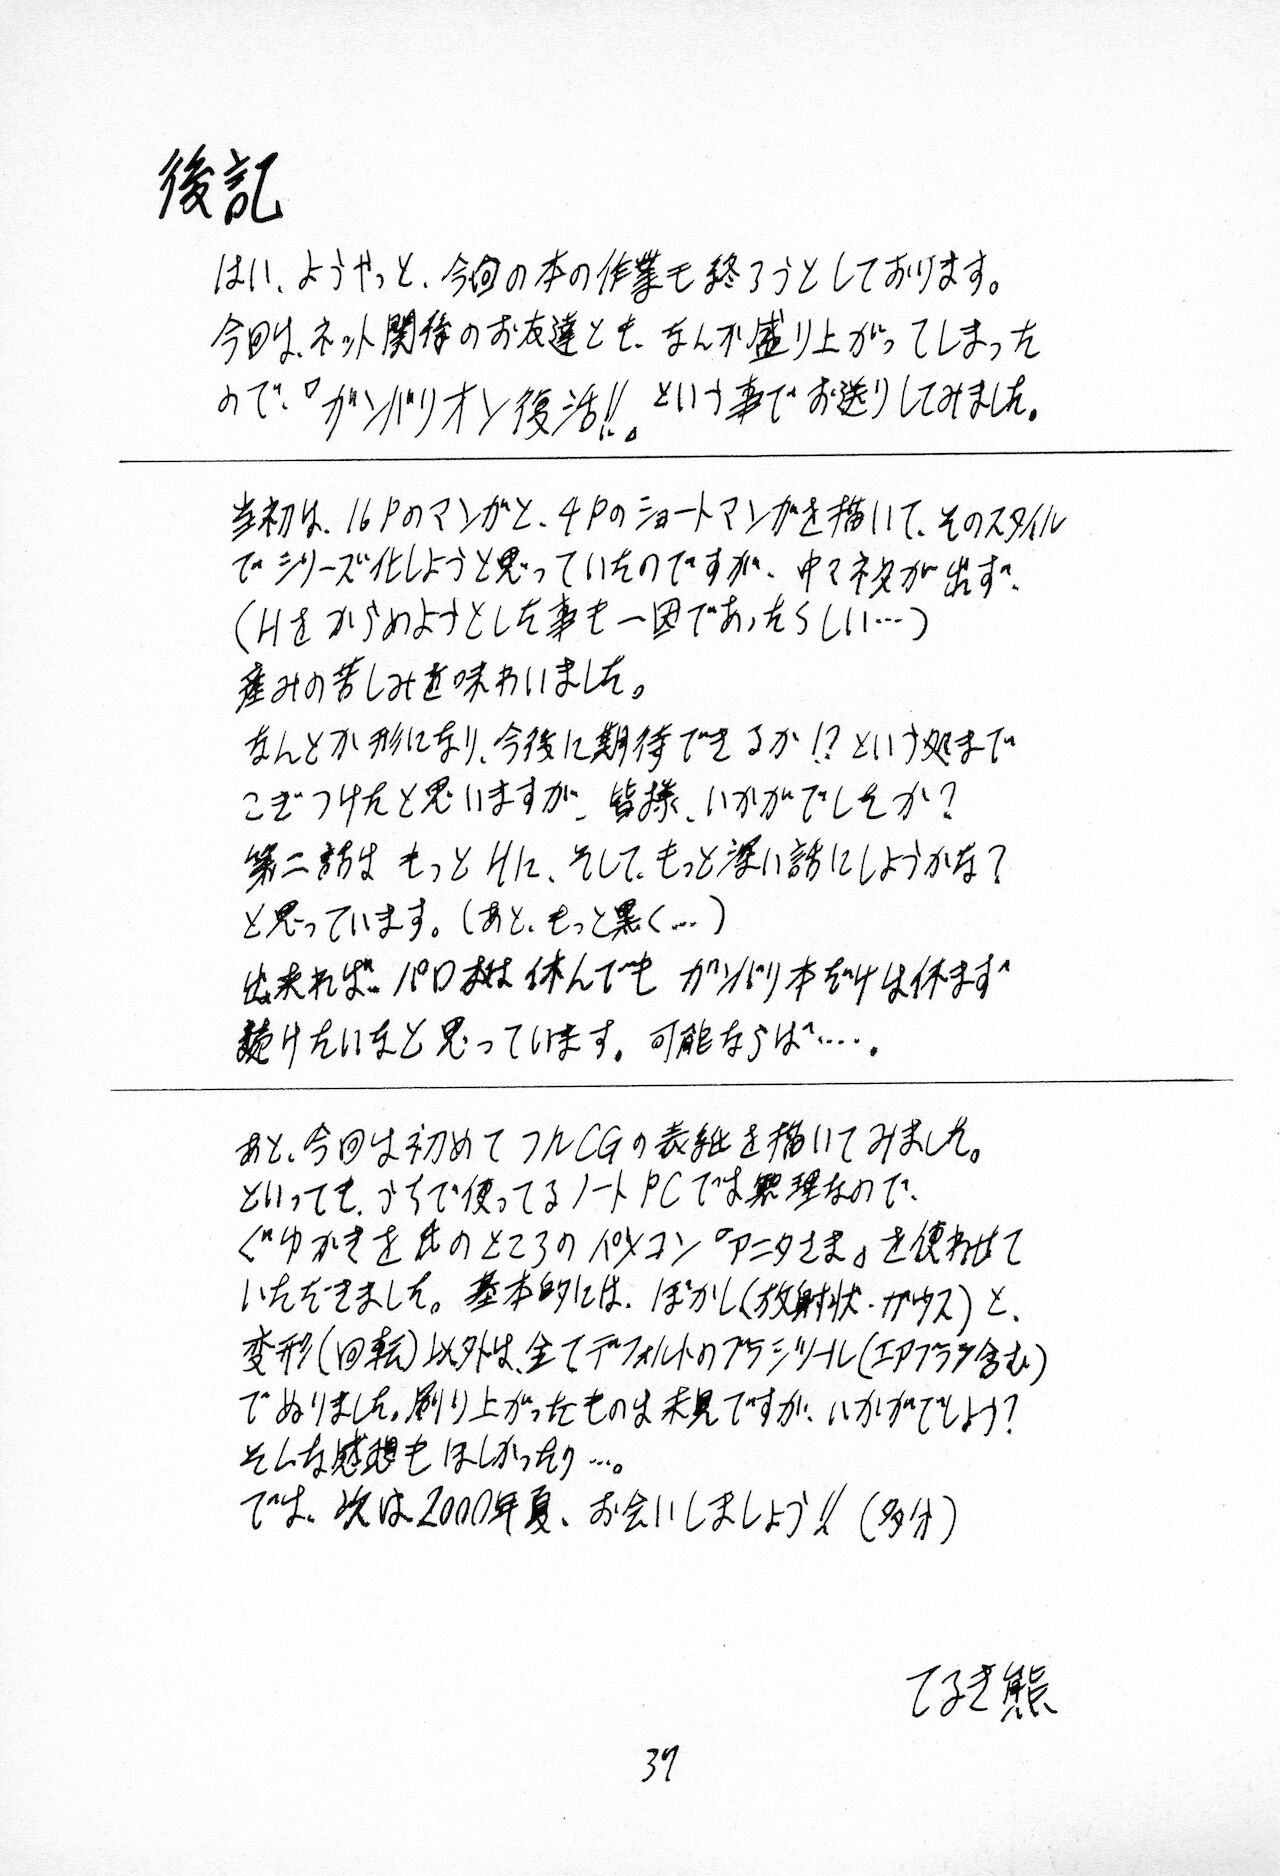 後記
はい、ようやっと、今回の本の作業も終ろうとしております。
今回は、ネット関係のお友達とも、なんか盛り上がってしまった
ので、『ガンバリオン復活!!』という事でお送りしてみました。
当初は、16Pのマンガと、4Pのショートマンガを描いて、そのスタイル
でシリーズ化しようと思っていたのですが、中々ネタが出ず、
(Hをからめようとした事も一因であったらしい…)
産みの苦しみを味わいました。
なんとか形になり、今後に期待できるか!?という処まで
こぎつけたと思いますが、皆様、いかがでしたか?
第二話は もっとHに、そして、もっと深い話にしようかな?
と思っています。(あと、もっと黒く…)
出来れば、パロ本は休んでも ガンバリ本だけは休まず
続けたいなと思っています。可能ならば…。
あと、今回は初めてフルCGの表紙を描いてみました。
といっても、うちで使ってるノートPCでは無理なので、
ぐゆかきを氏のところのパソコン『アニタさま』を使わせて
いただきました。基本的には、ぼかし(放射状・ガウス)と、
変形(回転)以外は、全てデフォルトのブラシツール(エアブラシ含む)
でぬりました。刷り上がったものは未見ですが、いかがでしょう?
そんな感想もほしかったり…。
では、次は2000年夏、お会いしましょう!!(多分)
てるき熊
37